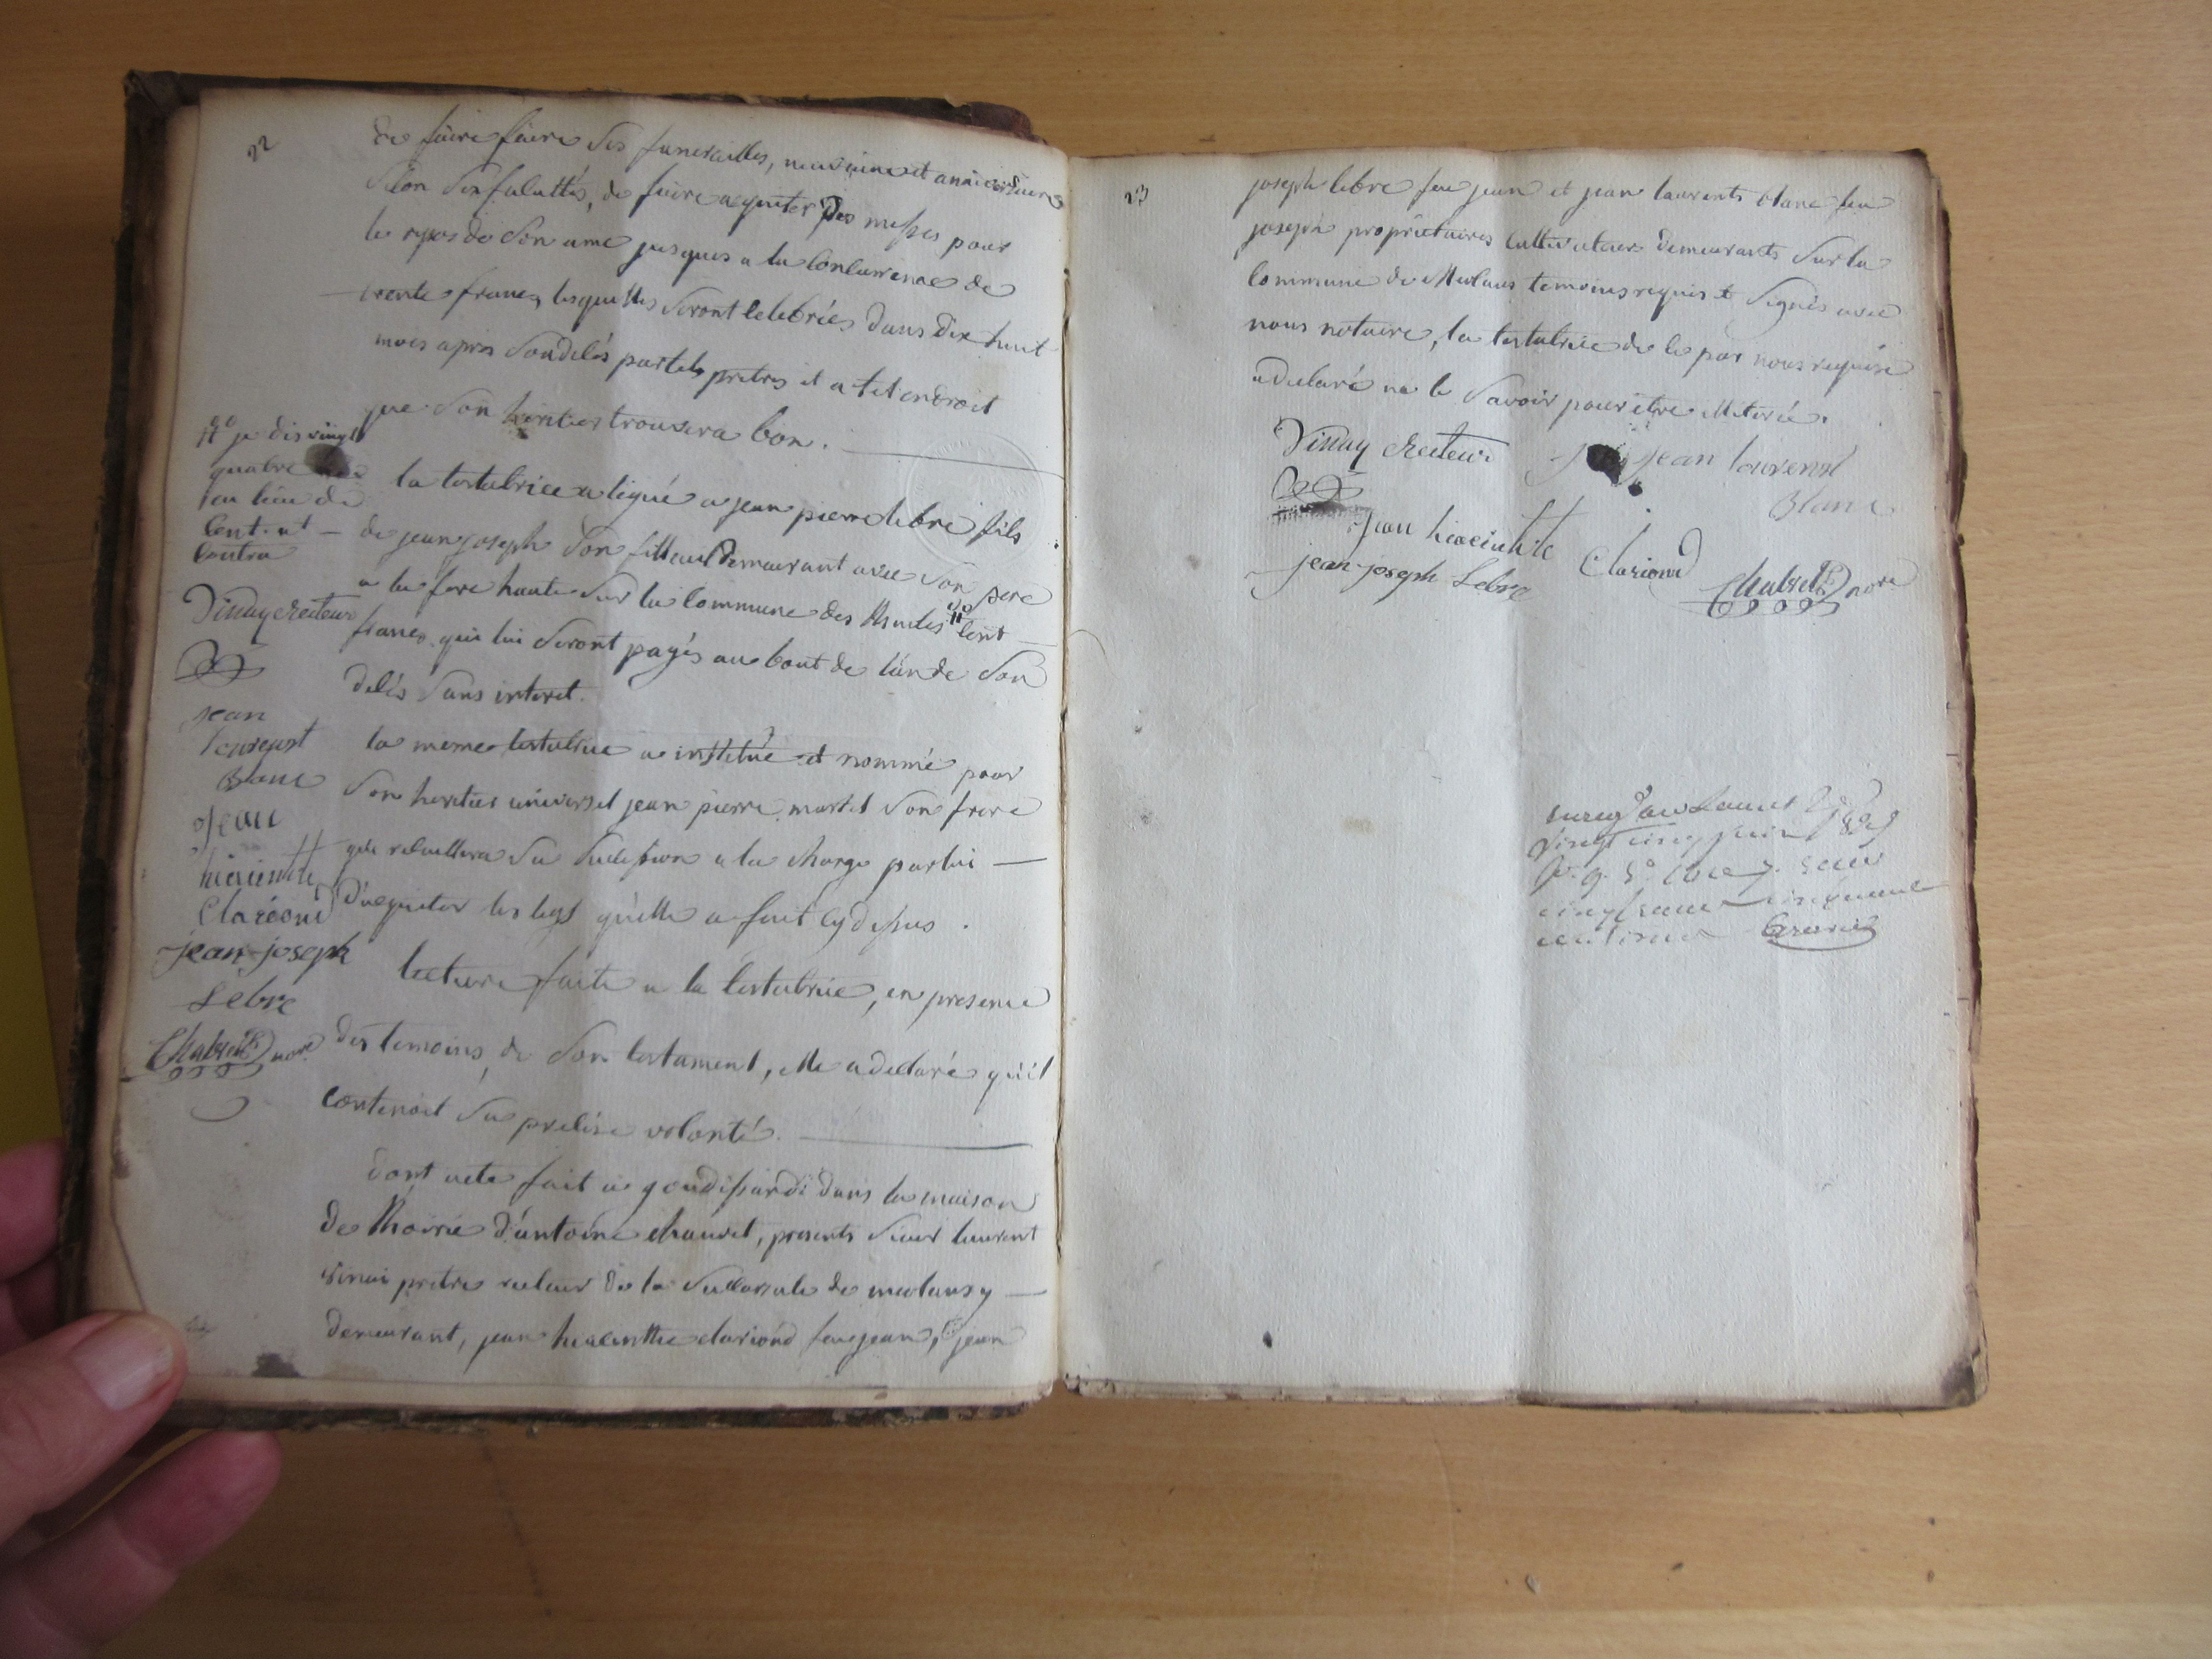 22
de faire faire ses funerailles, neuvaine et anniversaire
selon ses facultés, de faire aquiter des messes pour
le repos de son ame jusques a la conlurrence de
trente francs, lesquelles seront celebrées dans dix huit
mois apres son delés par tels pretres et a tel endroit
que son heritier trouvera bon.
la testatrice a legué a jean pierre lebre fils
de jean joseph son filleul demeurant avec son pere
a la fore haute sur la commune des Thuiles # cent
francs qui lui seront payés au bout de l'an de son
delés sans interet.
la meme testatrice a institué et nommé pour
son heritier universel jean pierre martel son frere
qui receuillera sa succession a la charge par lui
d'aquiter les legs qu'elle a fait cy dessus.
lecture faite a la testatrice, en presence
des temoins, de son testament, elle a declaré qu'il
contenoit sa precise volonté.
dont acte fait a goudissard dans la maison
de d'antoine chauvet, presents sieur laurent
vinai pretre recteur de la succursale de meolans y
demeurant, jean hiacinthe clariond feu jean, jean
# je dis vingt
quatre
au lieu de
cent et
contra
Vinay Recteur
jean
laurenst
Blanc
Jean
hiacintte
Clariond
jean joseph
Lebre
Chabrel nore
23
joseph lebre feu jean et jean laurents blanc feu
joseph proprietaires cultivateurs demeurants sur la
commune de Meolans temoins requis et signés avec
nous notaire, la testatrice de ce par nous requise
a declaré ne le savoir pour etre illiterée.
Vinay Recteur
jean laurenst
Blanc
Jean hiacintte Clariond
jean joseph Lebre
Chabrel nore
vingt cinq juin
cinq francs cinquante
centimes